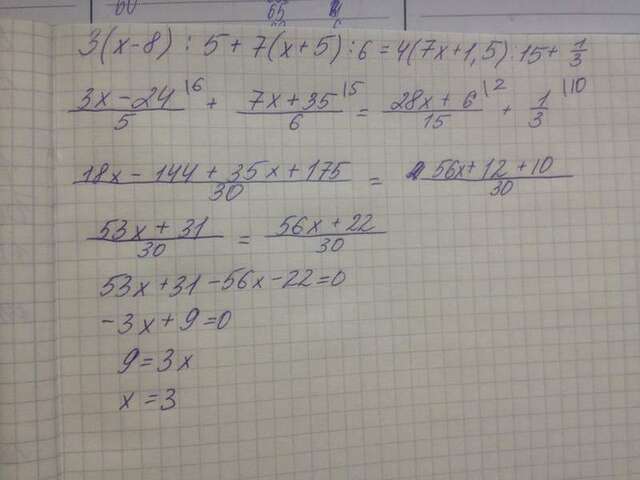 60 65
3(x-8) : 5 + 7(x+5) : 6 = 4(7x+1,5) : 15 + 1/3
(3x - 24)/5 \6 + (7x + 35)/6 \5 = (28x + 6)/15 \2 + 1/3 \10
(18x - 144 + 35x + 175)/30 = (56x + 12 + 10)/30
(53x + 31)/30 = (56x + 22)/30
53x + 31 - 56x - 22 = 0
-3x + 9 = 0
9 = 3x
x = 3